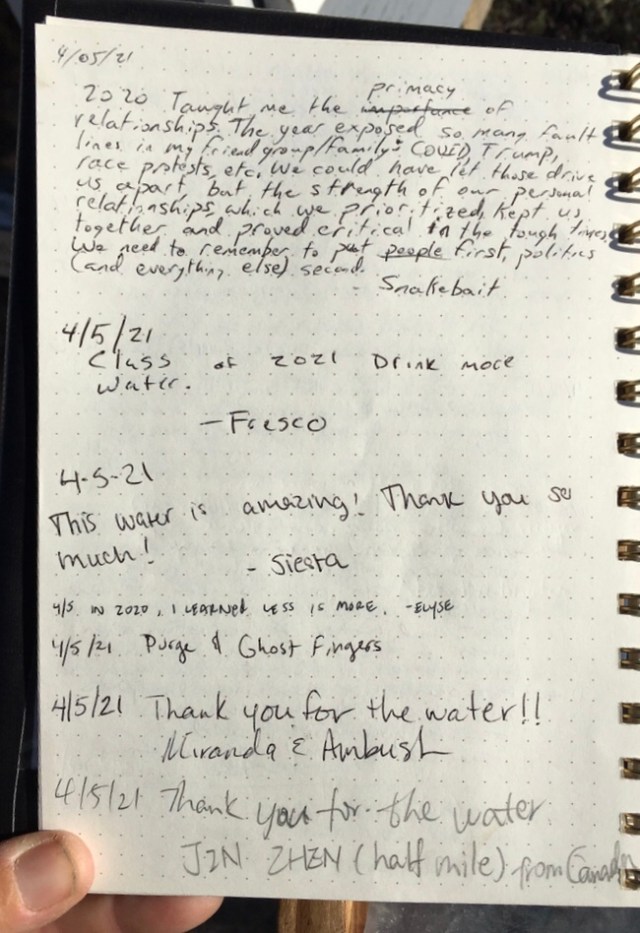 4/05/21
2020 Taught me the importance primacy of
relationships. The year exposed so many fault
lines in my friend group/family: COVID, Trump,
race protests, etc. We could have let those drive
us apart, but the strength of our personal
relationships, which we prioritized, kept us
together and proved critical in the tough times.
We need to remember to put people first, politics
(and everything else) second.
Snakebait
4/5/21
Class of 2021 Drink more
water.
- Fresco
4-5-21
This water is amazing! Thank you so
much!
- Siesta
4/5 IN 2020, I LEARNED LESS IS MORE. -ELYSE
4/5/21 Purge & Ghost Fingers
4/5/21 Thank you for the water!!
Miranda & Ambush
4/5/21 Thank you for the water
JIN ZHEN (half mile) from Canada